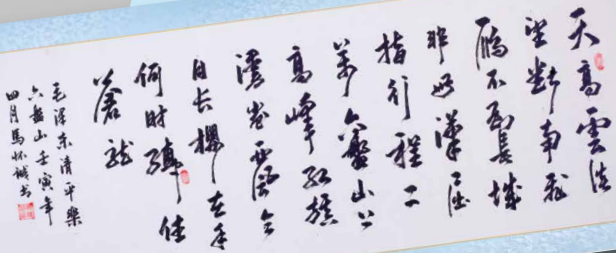 天高雲淡
望斷南飛
雁不到長城
非好漢屈
指行程二
萬六盤山上
高峰紅旗
漫卷西風今
日长纓在手
何時縛住
蒼龍
毛澤东清平樂
六盤山壬寅年
四月馬怀誠书